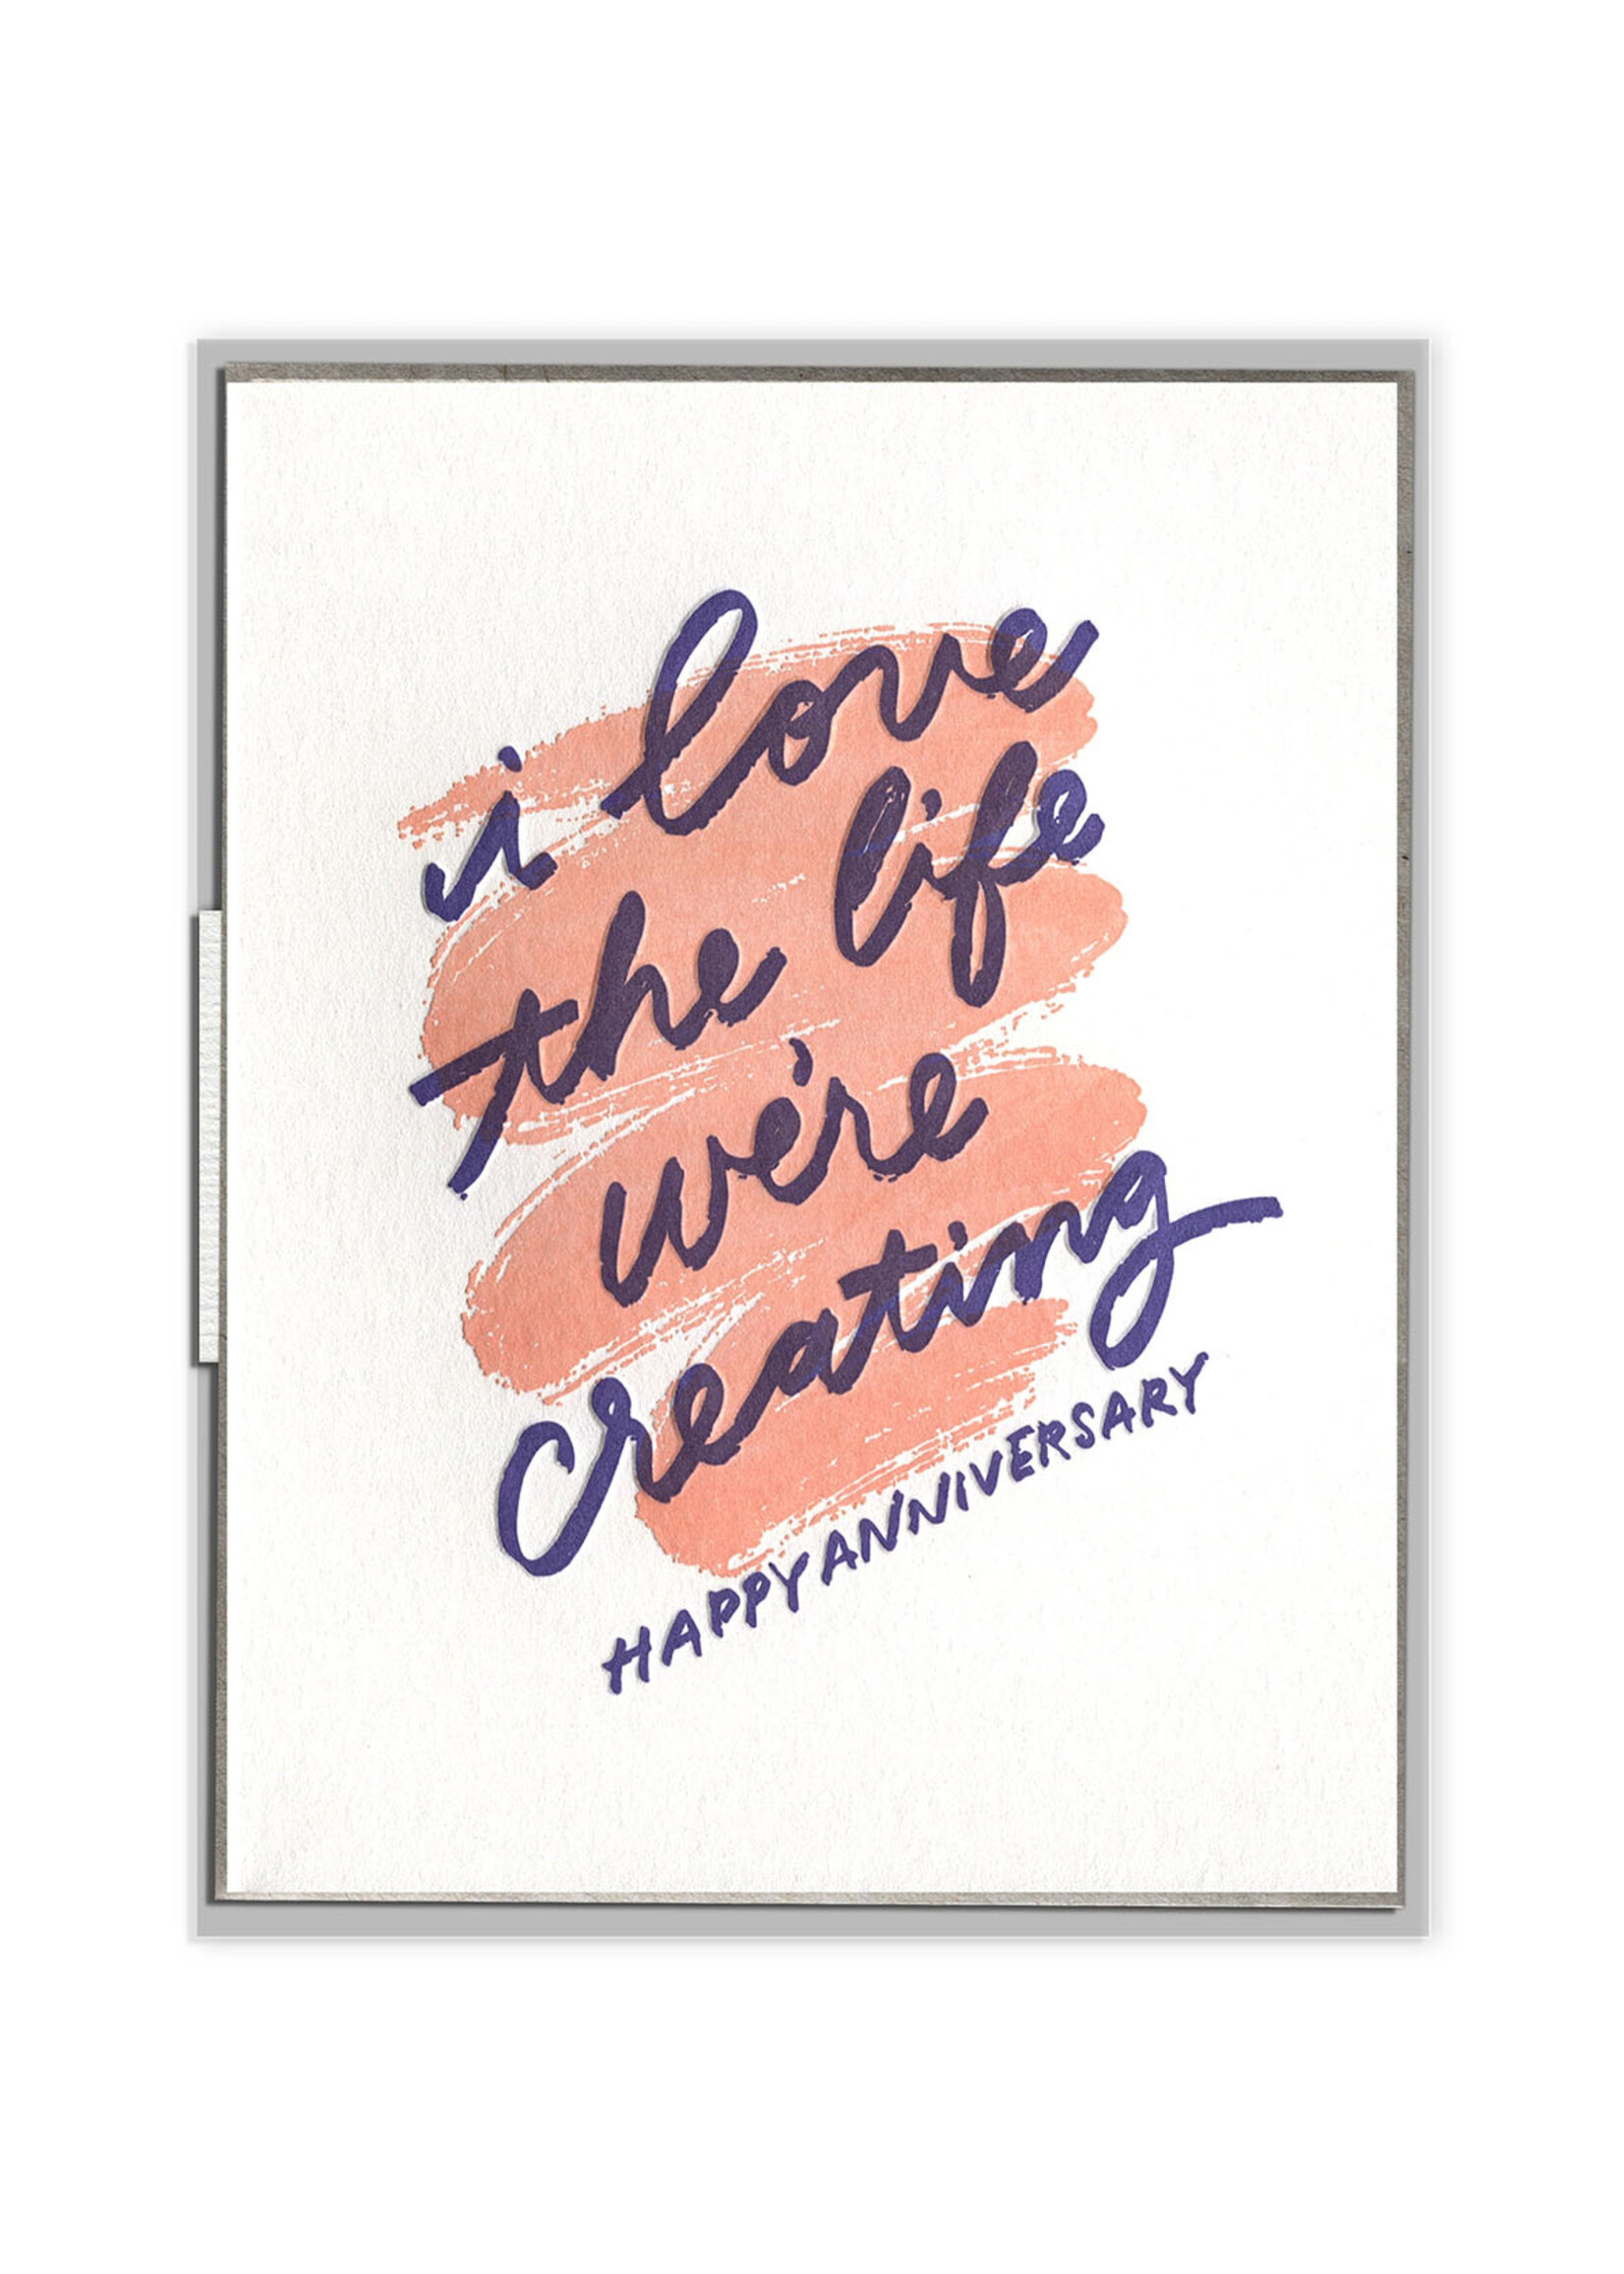 i love
the life
we're
creating
HAPPY ANNIVERSARY